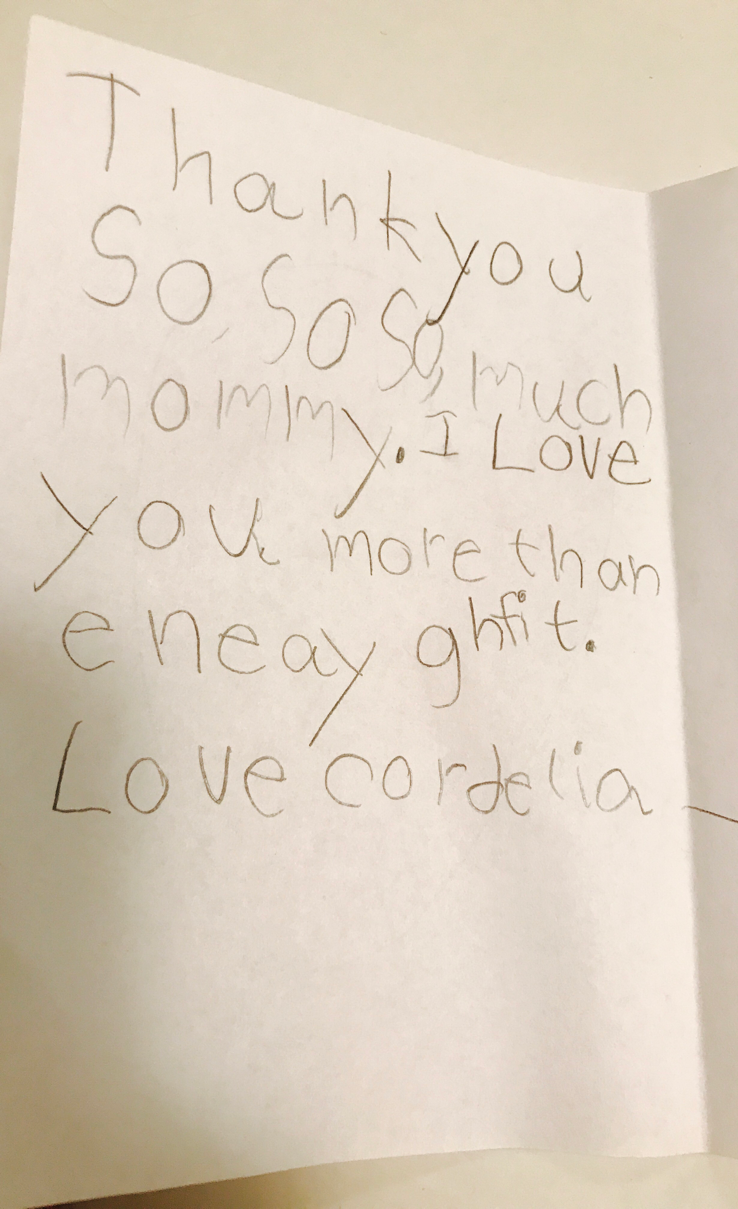 Thank you
So, So So, much
mommy. I Love
you more than
eneay ghfit.
Love cordelia